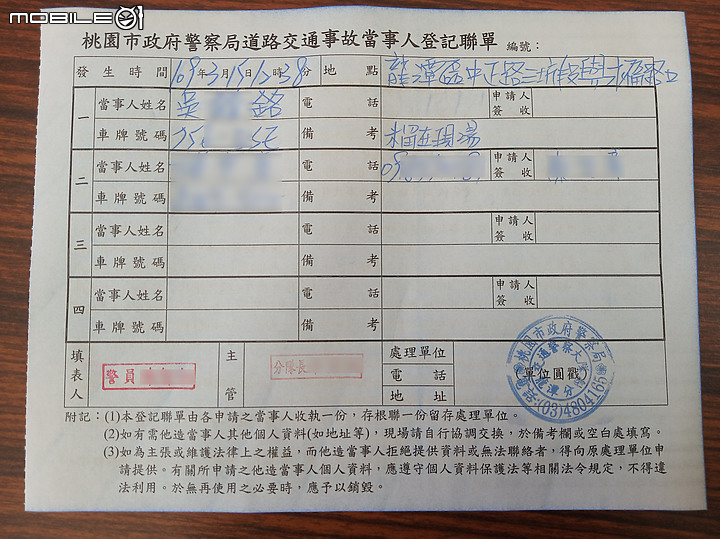 mobile01
桃園市政府警察局道路交通事故當事人登記聯單 編號：
發生時間 109年3月15日12時38分 地點 龍潭區中正路三坑段與 口
一 當事人姓名 吳 銘 電話 申請人簽收
車牌號碼 備考 現場
二 當事人姓名 電話 09 申請人簽收
車牌號碼 備考
三 當事人姓名 電話 申請人簽收
車牌號碼 備考
四 當事人姓名 電話 申請人簽收
車牌號碼 備考
填表人 警員 主管 分隊長 處理單位 單位圓戳
電話
地址
桃園市政府警察局
交通警察大隊
龍潭分
電話:(03)4804165
附記：(1)本登記聯單由各申請之當事人收執一份，存根聯一份留存處理單位。
(2)如有需他造當事人其他個人資料(如地址等)，現場請自行協調交換，於備考欄或空白處填寫。
(3)如為主張或維護法律上之權益，而他造當事人拒絕提供資料或無法聯絡者，得向原處理單位申
請提供。有關所申請之他造當事人個人資料，應遵守個人資料保護法等相關法令規定，不得違
法利用。於無再使用之必要時，應予以銷毀。